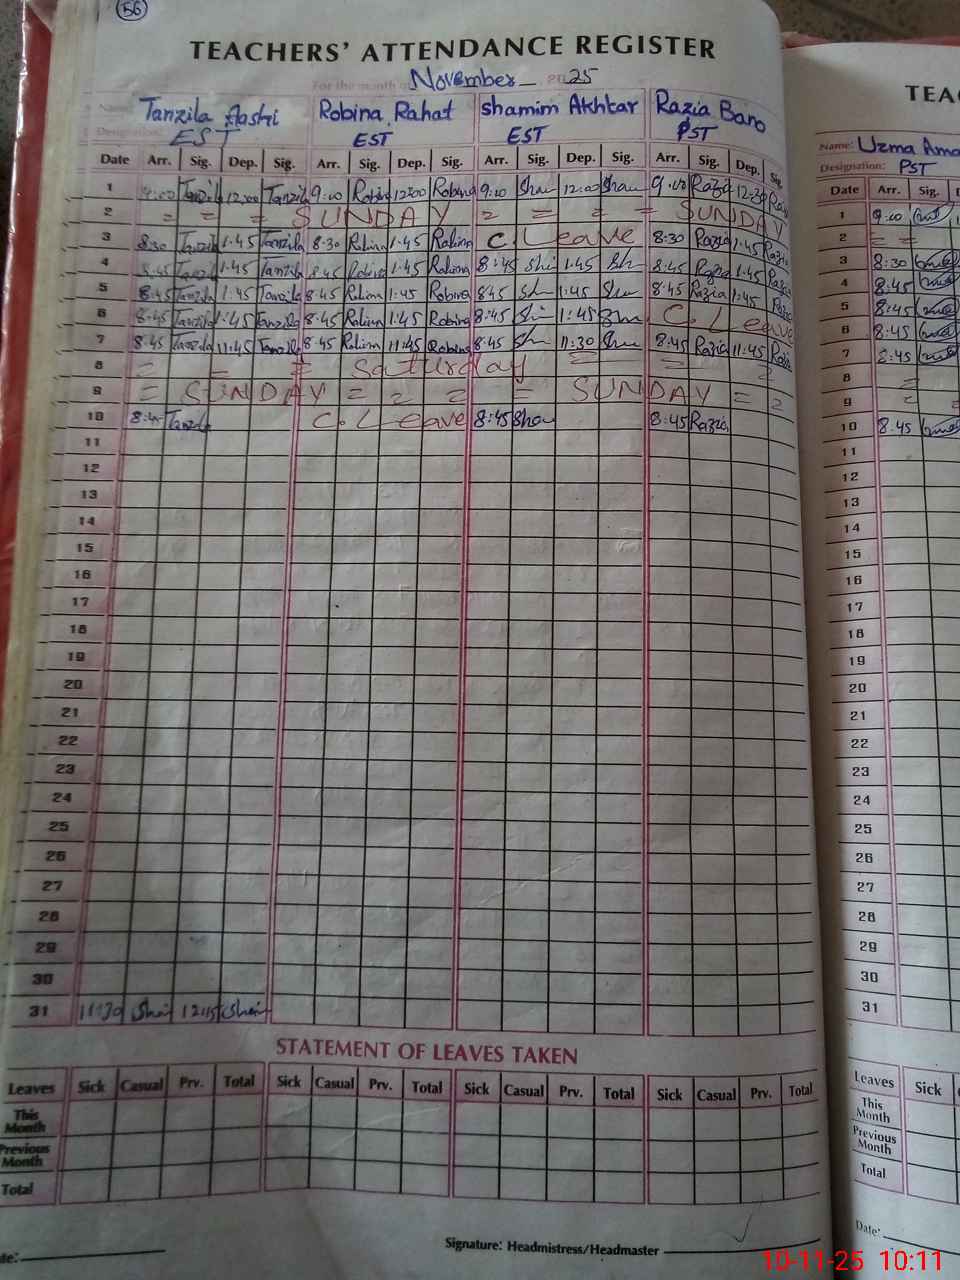 56
TEACHERS' ATTENDANCE REGISTER
For the month of November 2025
Tanzila Robina Rahat Shamim Akhtar Razia Bano
Designation: EST EST EST PST
Date Arr. Sig. Dep. Sig. Arr. Sig. Dep. Sig. Arr. Sig. Dep. Sig. Arr. Sig. Dep. Sig.
1 9:00 Tanzila 12:00 Tanzila 9:00 Robina 12:00 Robina 9:00 Sha 12:00 Sha 9:00 Razia 12:30
2 = = = SUNDAY = = = = SUNDAY
3 8:30 Tanzila 1:45 Tanzila 8:30 Robina 1:45 Robina C. Leave 8:30 Razia 1:45 Razia
4 8:45 Tanzila 1:45 Tanzila 8:45 Robina 1:45 Robina 8:45 1:45 8:45 Razia 1:45 Razia
5 8:45 Tanzila 1:45 Tanzila 8:45 Robina 1:45 Robina 8:45 1:45 8:45 Razia 1:45 Razia
6 8:45 Tanzila 1:45 Tanzila 8:45 Robina 1:45 Robina 8:45 1:45 C. Leave
7 8:45 Tanzila 11:45 Tanzila 8:45 Robina 11:45 Robina 8:45 11:30 8:45 Razia 11:45 Razia
8 = = = Saturday = = =
9 = SUNDAY = = = = SUNDAY = =
10 8:45 Tanzila C. Leave 8:45 Sha 8:45 Razia
11
12
13
14
15
16
17
18
19
20
21
22
23
24
25
26
27
28
29
30
31 11:30 12:15
STATEMENT OF LEAVES TAKEN
Leaves Sick Casual Prv. Total Sick Casual Prv. Total Sick Casual Prv. Total Sick Casual Prv. Total
This Month
Previous Month
Total
Signature: Headmistress/Headmaster
TEAC
Name: Uzma
Designation: PST
Date Arr. Sig.
1 9:00
2 = =
3 8:30
4 8:45
5 8:45
6 8:45
7 8:45
8 =
9 =
10 8:45
11
12
13
14
15
16
17
18
19
20
21
22
23
24
25
26
27
28
29
30
31
Leaves Sick
This Month
Previous Month
Total
Date:
10-11-25 10:11